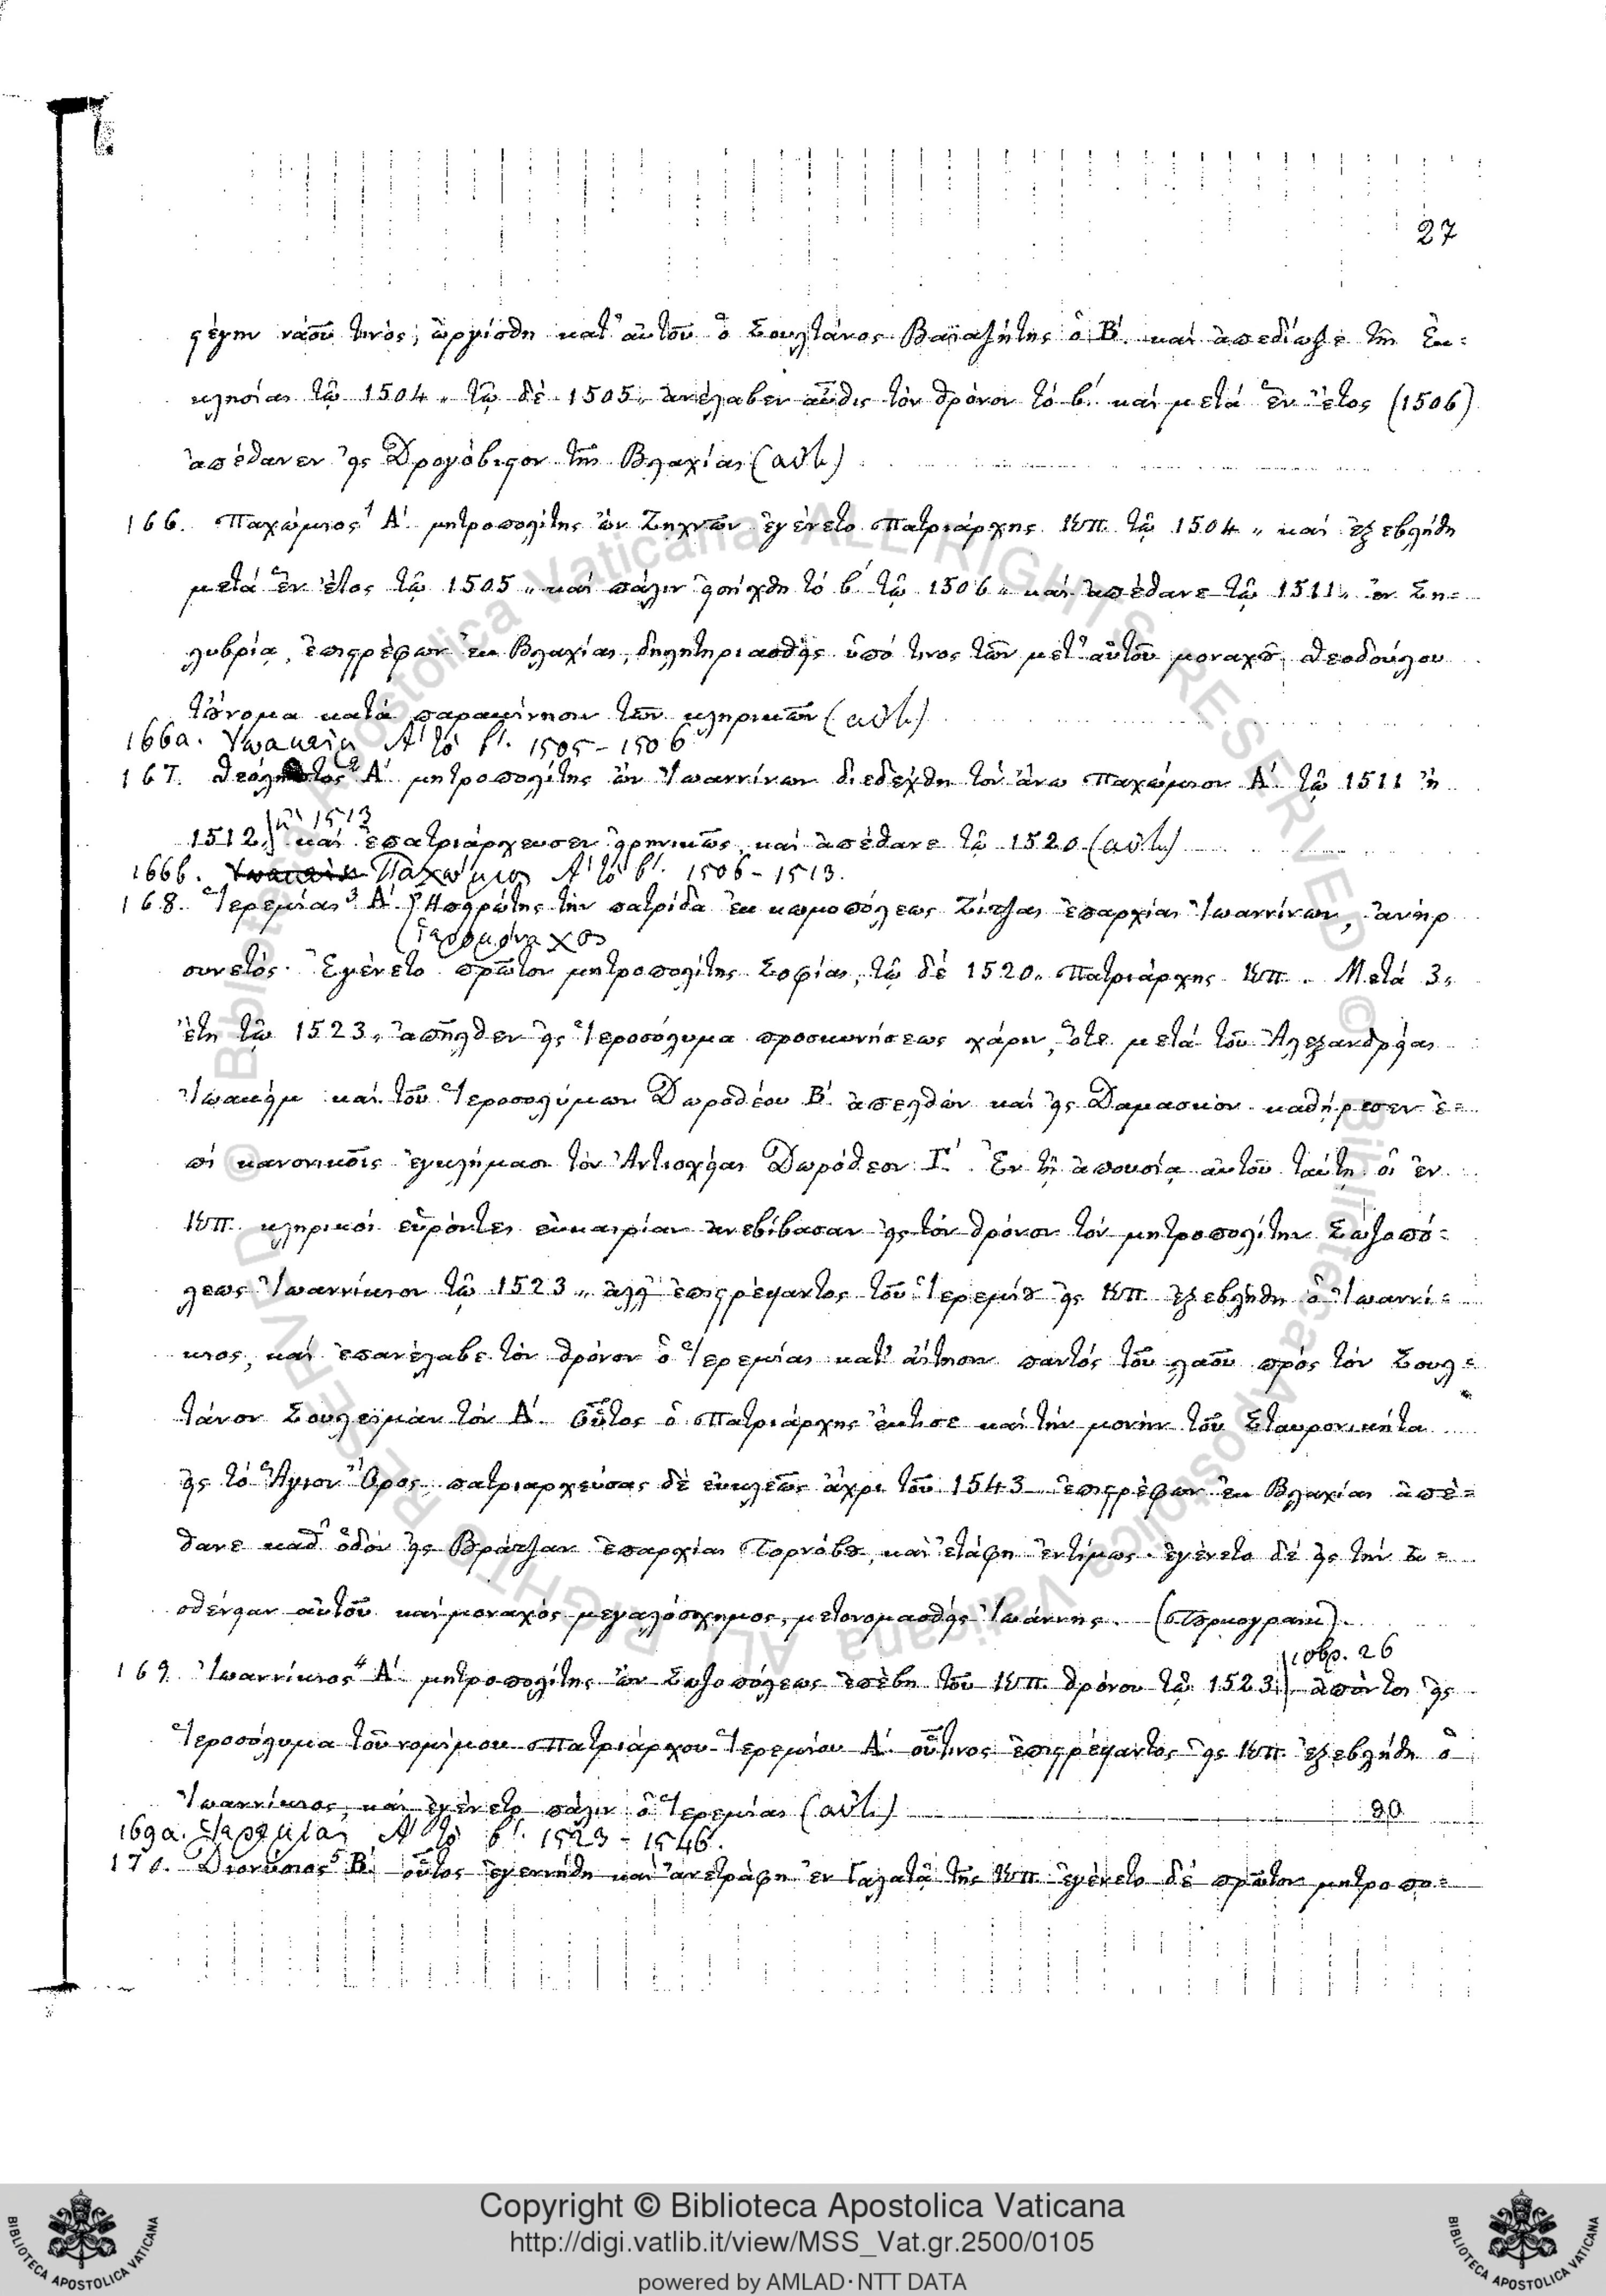 27
στέγην ναοῦ τινός, ὠργίσθη κατ' αὐτοῦ ὁ Σουλτάνος Βαϊαζήτης ὁ Β΄. καὶ ἀπεδίωξε τῆς Ἐκ=
κλησίας τῷ 1504 „ τῷ δὲ 1505 „ ἀνέλαβεν αὖθις τὸν θρόνον τὸ β΄. καὶ μετὰ ἓν ἔτος (1506)
ἀπέθανεν εἰς Δρογόβιστον τῆς Βλαχίας (αὐτ.)
166. Παχώμιος¹ Α΄. μητροπολίτης ὢν Ζηχνῶν ἐγένετο Πατριάρχης Κπ. τῷ 1504 „ καὶ ἐξεβλήθη
μετὰ ἓν ἔτος τῷ 1505 „ καὶ πάλιν εἰσήχθη τὸ β΄ τῷ 1506 „ καὶ ἀπέθανε τῷ 1511 „ ἐν Ση=
λυβρίᾳ, ἐπιστρέφων ἐκ Βλαχίας, δηλητηριασθεὶς ὑπό τινος τῶν μετ' αὐτοῦ μοναχοῦ, Θεοδούλου
τὄνομα κατὰ παρακίνησιν τῶν κληρικῶν (αὐτ.)
166a. Ἰωακεὶμ Α΄ τὸ β΄. 1505-1506
167. Θεόληπτος² Α΄. μητροπολίτης ὢν Ἰωαννίνων διεδέχθη τὸν ἄνω Παχώμιον Α΄. τῷ 1511 ἢ
ἢ 1513
1512, καὶ ἐπατριάρχευσεν εἰρηνικῶς, καὶ ἀπέθανε τῷ 1520 (αὐτ.)
166b. Παχώμιος Α΄ τὸ β΄. 1506-1513.
168. Ἱερεμίας³ Α΄. Ἠπειρώτης τὴν πατρίδα ἐκ κωμοπόλεως Ζίτζας ἐπαρχίας Ἰωαννίνων, ἀνὴρ
συνετός. Ἐγένετο πρῶτον μητροπολίτης Σοφίας, τῷ δὲ 1520 „ Πατριάρχης Κπ. Μετὰ 3 „
ἔτη τῷ 1523 „ ἀπῆλθεν εἰς Ἱεροσόλυμα προσκυνήσεως χάριν, ὅτε μετὰ τοῦ Ἀλεξανδρείας
Ἰωακεὶμ καὶ τοῦ Ἱεροσολύμων Δωροθέου Β΄. ἀπελθὼν καὶ εἰς Δαμασκὸν καθήρεσεν ἐ=
πὶ κανονικοῖς ἐγκλήμασι τὸν Ἀντιοχείας Δωρόθεον Γ΄. Ἐν τῇ ἀπουσίᾳ αὐτοῦ ταύτῃ οἱ ἐν
Κπ. κληρικοὶ εὑρόντες εὐκαιρίαν ἀνεβίβασαν εἰς τὸν θρόνον τὸν μητροπολίτην Σωζοπό=
λεως Ἰωαννίκιον τῷ 1523 „ ἀλλ' ἐπιστρέψαντος τοῦ Ἱερεμίου εἰς Κπ. ἐξεβλήθη ὁ Ἰωαννί=
κιος, καὶ ἐπανέλαβε τὸν θρόνον ὁ Ἱερεμίας κατ' αἴτησιν παντὸς τοῦ λαοῦ πρὸς τὸν Σουλ=
τάνον Σουλεϊμὰν τὸν Α΄. Οὗτος ὁ Πατριάρχης ἔκτισε καὶ τὴν μονὴν τοῦ Σταυρονικήτα
εἰς τὸ Ἅγιον Ὄρος, πατριαρχεύσας δὲ εὐκλεῶς ἄχρι τοῦ 1543 ἐπιστρέφων ἐκ Βλαχίας ἀπέ=
θανε καθ' ὁδὸν εἰς Βράτζαν ἐπαρχίας Τορνόβου, καὶ ἐτάφη ἐντίμως. ἐγένετο δὲ εἰς τὴν ἀ=
σθένειαν αὐτοῦ καὶ μοναχὸς μεγαλόσχημος, μετονομασθεὶς Ἰωάννης.
νοβρ. 26
169. Ἰωαννίκιος⁴ Α΄. μητροπολίτης ὢν Σωζοπόλεως ἐπέβη τοῦ Κπ. θρόνου τῷ 1523, ἀπόντος εἰς
Ἱεροσόλυμα τοῦ νομίμου Πατριάρχου Ἱερεμίου Α΄. οὗτινος ἐπιστρέψαντος εἰς Κπ. ἐξεβλήθη ὁ
Ἰωαννίκιος, καὶ ἐγένετο πάλιν ὁ Ἱερεμίας (αὐτ.)
169a. Ἱερεμίας Α΄ τὸ β΄. 1523-1546.
170. Διονύσιος⁵ Β΄. οὗτος ἐγεννήθη καὶ ἀνετράφη ἐν Γαλατᾷ τῆς Κπ. ἐγένετο δὲ πρῶτον μητροπο=
© Biblioteca Apostolica Vaticana ALL RIGHTS RESERVED
Copyright © Biblioteca Apostolica Vaticana
http://digi.vatlib.it/view/MSS_Vat.gr.2500/0105
powered by AMLAD·NTT DATA
BIBLIOTECA APOSTOLICA VATICANA
BIBLIOTECA APOSTOLICA VATICANA